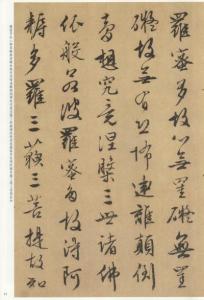 羅蜜多故心無罣礙無罣
礙故無有恐怖遠離顛倒
夢想究竟涅槃三世諸佛
依般若波羅蜜多故得阿
耨多羅三藐三菩提故知